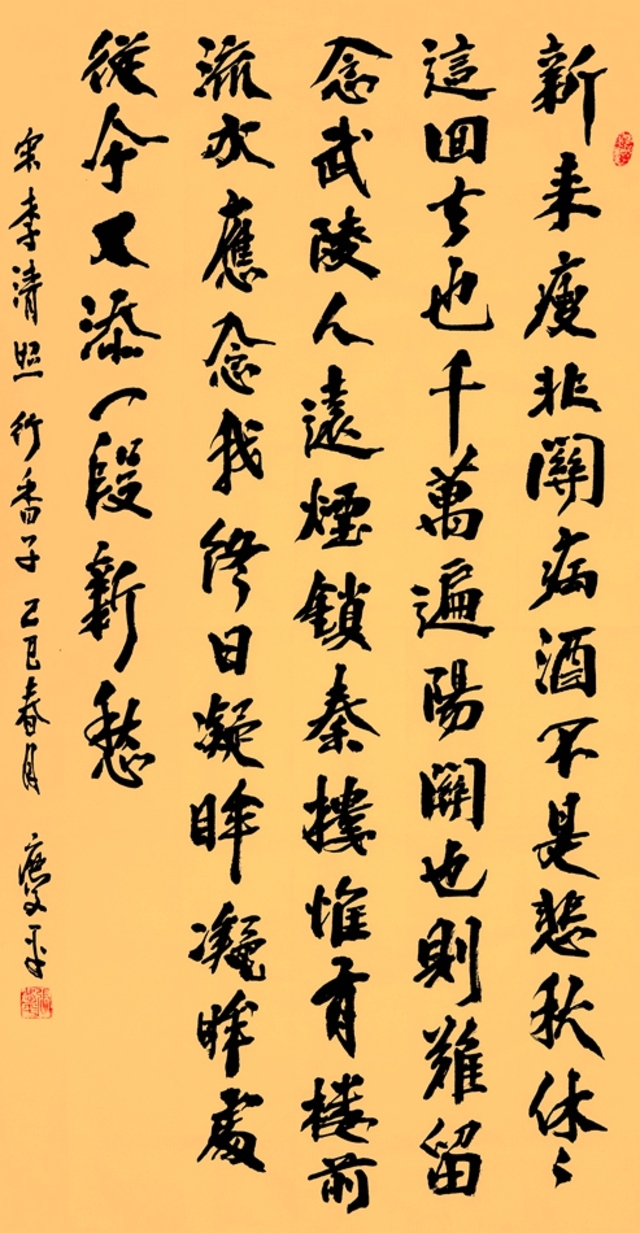 新来瘦非關病酒不是悲秋休々
這回去也千萬遍陽關也則難留
念武陵人遠煙鎖秦樓惟有楼前
流水應念我終日凝眸凝眸處
從今又添一段新愁
宋李清照行香子乙巳春月